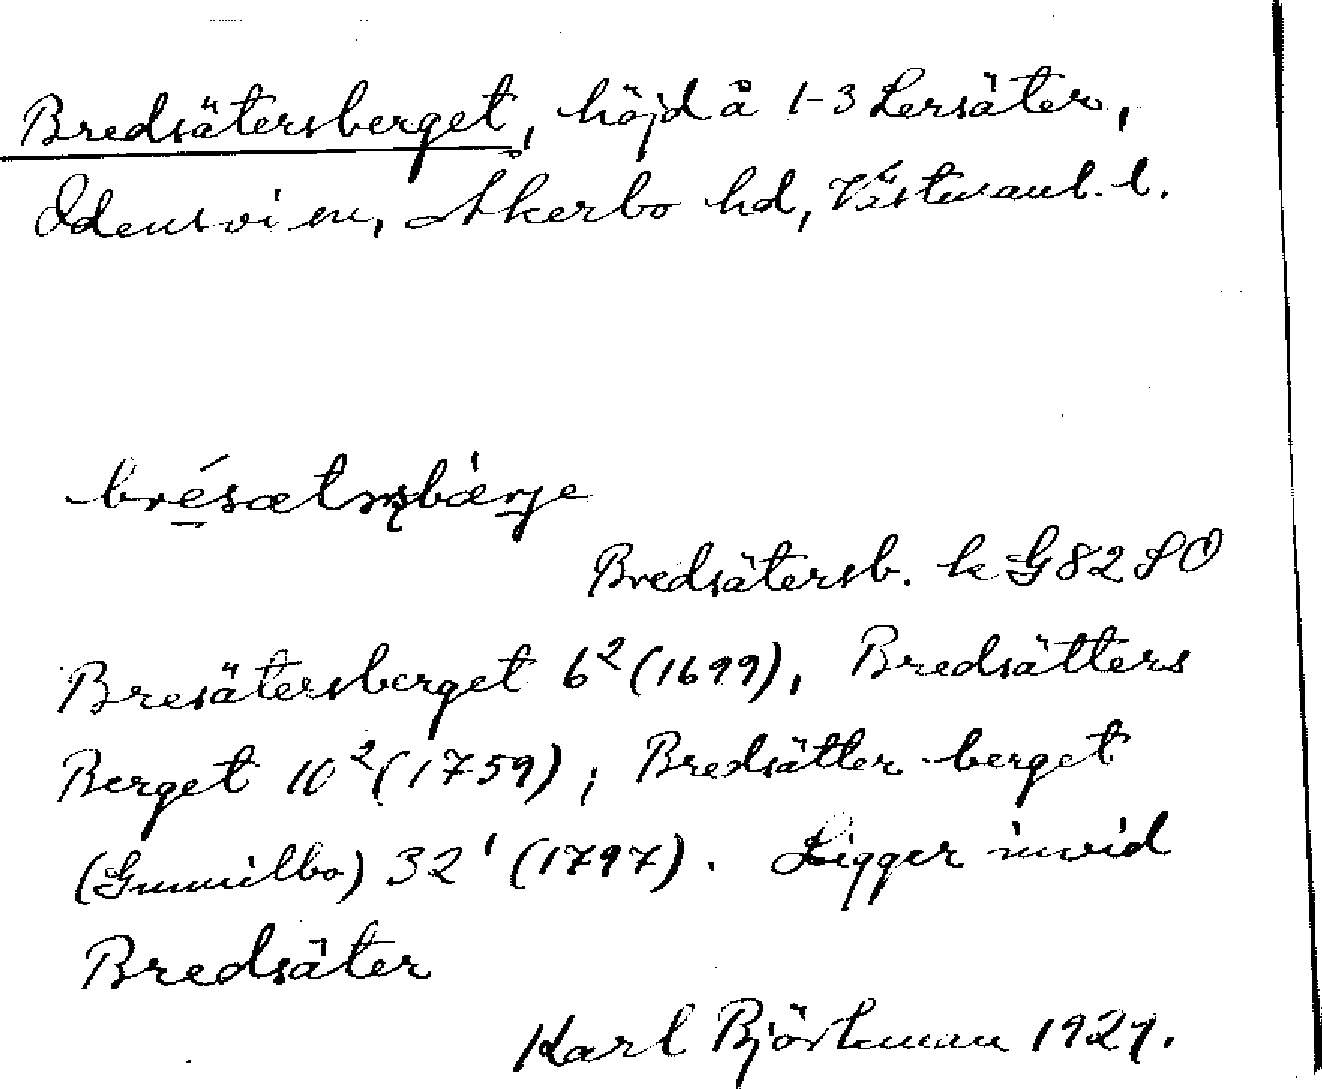 Bredsätersberget, höjd å 1-3 Lersäter,
Odensvi sn, Åkerbo hd, Västmanl. l.
Bredsätersb. k G82 SO
Bresätersberget 6² (1699), Bredsätters
Berget 10² (1759), Bredsätter-berget
(Gunnilbo) 32¹ (1797). Ligger invid
Bredsäter
Karl Björkman 1927.